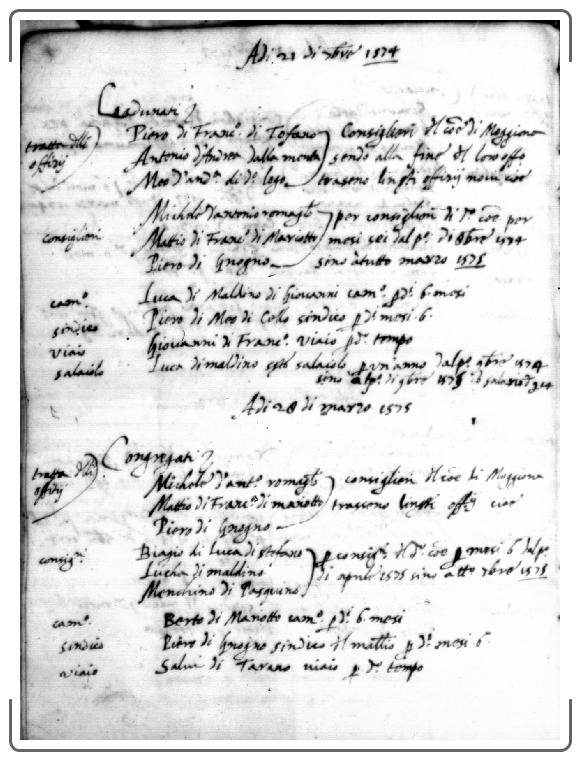 Adi 21 di 7bre 1574
Coadunati
tratta dlli offitij
Piero di Franc.º di Tofano
Antonio d'Andrea dalla monta
Meo d'And.ª di d.º logo
Consiglieri d'l cõe di Moggiona
sendo alla fine d'l loro offº
trasseno l'infti offitij novi cioe
consiglieri
Michele d'antonio romagli
Mattio di Franc.º di Mariotto
Piero di Gnogno
per consiglieri di d.º cõe per
mesi sei dal p.º di 8bre 1574
sino a tutto marzo 1575
cam.º Luca di Maldino di Giovanni cam.º p di 6 mesi
sindico Piero di Meo di Cello sindico p di mesi 6
viaio Giovanni di Franc.º viaio p d.º tempo
salaiolo Luca di maldino salaiolo p un anno dal p.º 9bre 1574
sino a di 9bre 1575
Adi 28 di marzo 1575
Congregati
tratta dlli offitij
Michele d'ant.º romagli
Mattio di Franc.º di mariotto
Piero di Gnogno
consiglieri d'l cõe di Moggiona
trasseno l'infti offitij cioe
consigri
Biagio di Luca di stefano
Lucha di maldino
Menchino di Pasquino
p consigri d'l d.º cõe p mesi 6 dal p.º
di aprile 1575 sino a tto 7bre 1575
cam.º Berto di Mariotto cam.º p di 6 mesi
sindico Piero di Gnogno sindico d'l p di mesi 6
viaio Salvi di Tarano viaio p d.º tempo